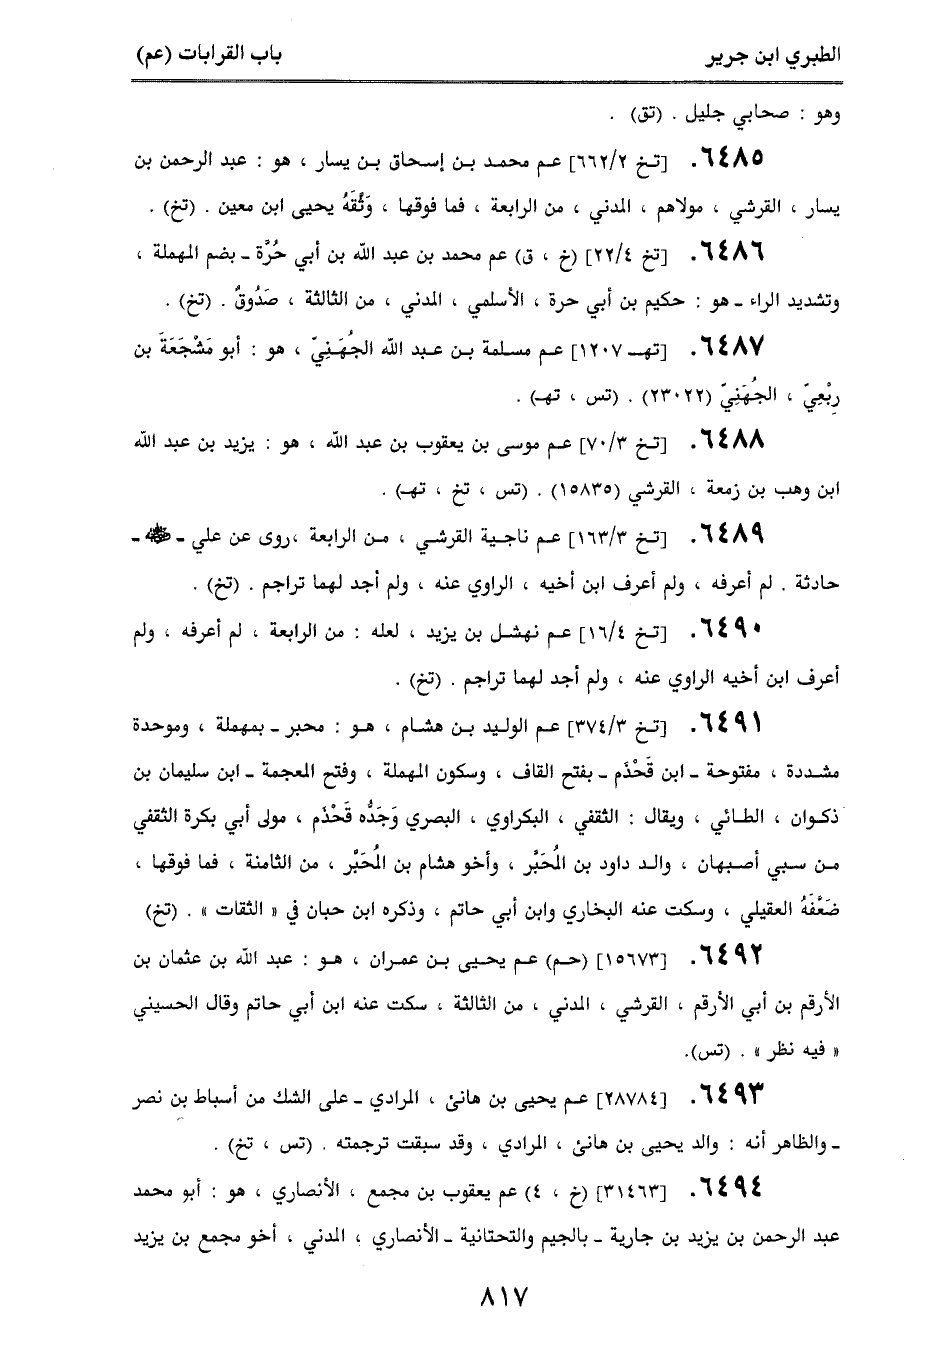 الطبري ابن جرير
باب القرابات (عم)
وهو : صحابي جليل . (تق) .
٦٤٨٥. [تخ ٦٦٢/٢] عم محمد بن إسحاق بن يسار ، هو : عبد الرحمن بن
يسار ، القرشي ، مولاهم ، المدني ، من الرابعة ، فما فوقها ، وَثَّقَهُ يحيى ابن معين . (تخ) .
٦٤٨٦. [تخ ٢٢/٤] (خ ، ق) عم محمد بن عبد الله بن أبي حُرَّة ـ بضم المهملة ،
وتشديد الراء ـ هو : حكيم بن أبي حرة ، الأسلمي ، المدني ، من الثالثة ، صَدُوقٌ . (تخ) .
٦٤٨٧. [تهـ ١٢٠٧] عم مسلمة بن عبد الله الجُهَنِيّ ، هو : أبو مَشْجَعَةَ بن
رِبْعِيّ ، الجُهَنِيّ (٢٣٠٢٢) . (تس ، تهـ) .
٦٤٨٨. [تخ ٧٠/٣] عم موسى بن يعقوب بن عبد الله ، هو : يزيد بن عبد الله
ابن وهب بن زمعة ، القرشي (١٥٨٣٥) . (تس ، تخ ، تهـ) .
٦٤٨٩. [تخ ١٦٣/٣] عم ناجية القرشي ، من الرابعة ،روى عن علي ـ ﷺ ـ
حادثة . لم أعرفه ، ولم أعرف ابن أخيه ، الراوي عنه ، ولم أجد لهما تراجم . (تخ) .
٦٤٩٠. [تخ ١٦/٤] عم نهشل بن يزيد ، لعله : من الرابعة ، لم أعرفه ، ولم
أعرف ابن أخيه الراوي عنه ، ولم أجد لهما تراجم . (تخ) .
٦٤٩١. [تخ ٣٧٤/٣] عم الوليد بن هشام ، هو : محبر ـ بمهملة ، وموحدة
مشددة ، مفتوحة ـ ابن قَحْذَم ـ بفتح القاف ، وسكون المهملة ، وفتح المعجمة ـ ابن سليمان بن
ذكوان ، الطائي ، ويقال : الثقفي ، البكراوي ، البصري وَجَدُّه قَحْذَم ، مولى أبي بكرة الثقفي
من سبي أصبهان ، والد داود بن المُحَبَّر ، وأخو هشام بن المُحَبَّر ، من الثامنة ، فما فوقها ،
ضَعَّفَهُ العقيلي ، وسكت عنه البخاري وابن أبي حاتم ، وذكره ابن حبان في « الثقات » . (تخ)
٦٤٩٢. [١٥٦٧٣] (حم) عم يحيى بن عمران ، هو : عبد الله بن عثمان بن
الأرقم بن أبي الأرقم ، القرشي ، المدني ، من الثالثة ، سكت عنه ابن أبي حاتم وقال الحسيني
« فيه نظر » . (تس).
٦٤٩٣. [٢٨٧٨٤] عم يحيى بن هانئ ، المرادي ـ على الشك من أسباط بن نصر
ـ والظاهر أنه : والد يحيى بن هانئ ، المرادي ، وقد سبقت ترجمته . (تس ، تخ) .
٦٤٩٤. [٣١٤٦٣] (خ ، ٤) عم يعقوب بن مجمع ، الأنصاري ، هو : أبو محمد
عبد الرحمن بن يزيد بن جارية ـ بالجيم والتحتانية ـ الأنصاري ، المدني ، أخو مجمع بن يزيد
٨١٧